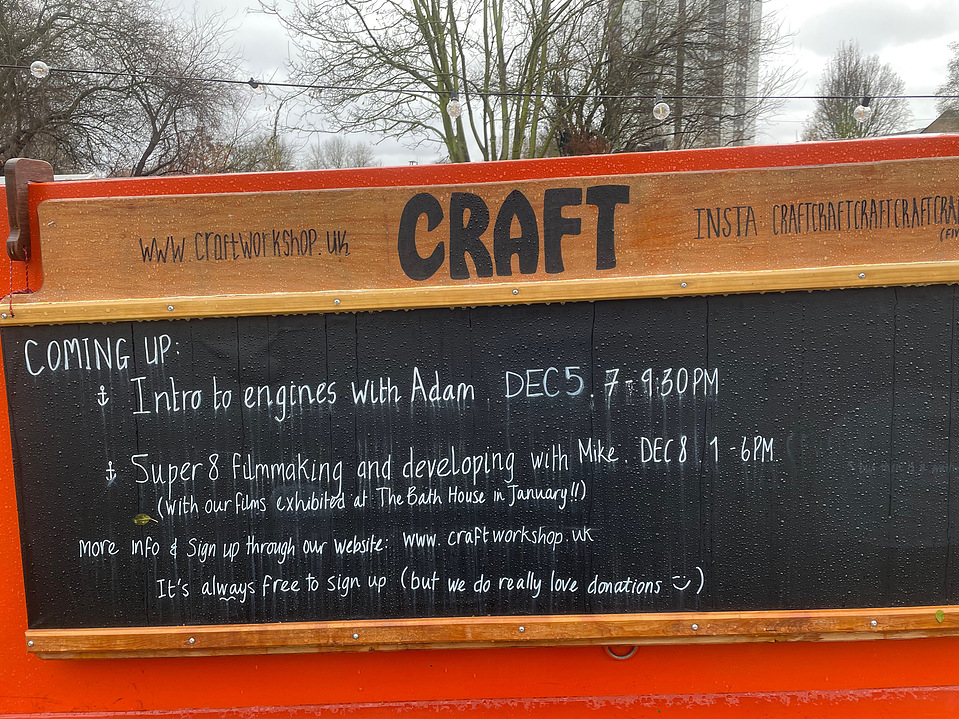 www.craftworkshop.uk
CRAFT
INSTA: CRAFTCRAFTCRAFTCRAFTCRA
COMING UP:
Intro to engines with Adam. DEC 5. 7-9:30PM
Super 8 filmmaking and developing with Mike. DEC 8 1-6PM.
(with our films exhibited at The Bath House in January!!)
More info & Sign up through our website: www.craftworkshop.uk
It's always free to sign up (but we do really love donations :-))